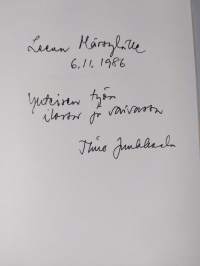 Leena Märsylälle
6.11.1986
Yhteisen työn
ilosta ja vaivasta
Timo Junkkaala